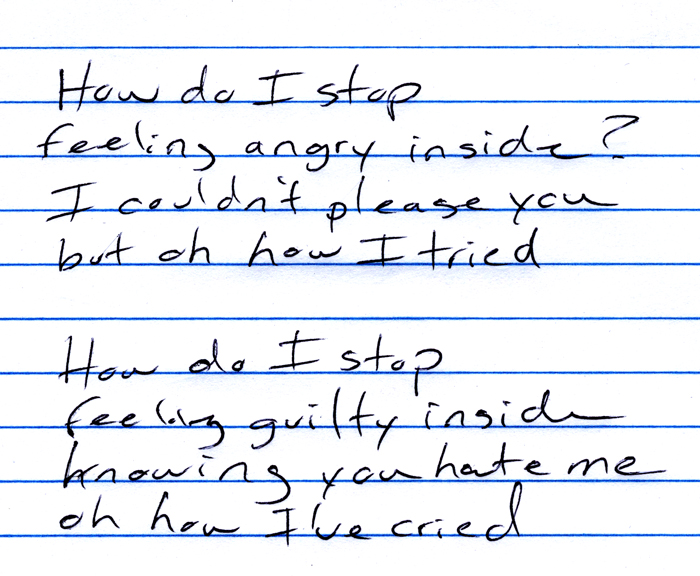 How do I stop
feeling angry inside?
I couldn't please you
but oh how I tried
How do I stop
feeling guilty inside
knowing you hate me
oh how I've cried